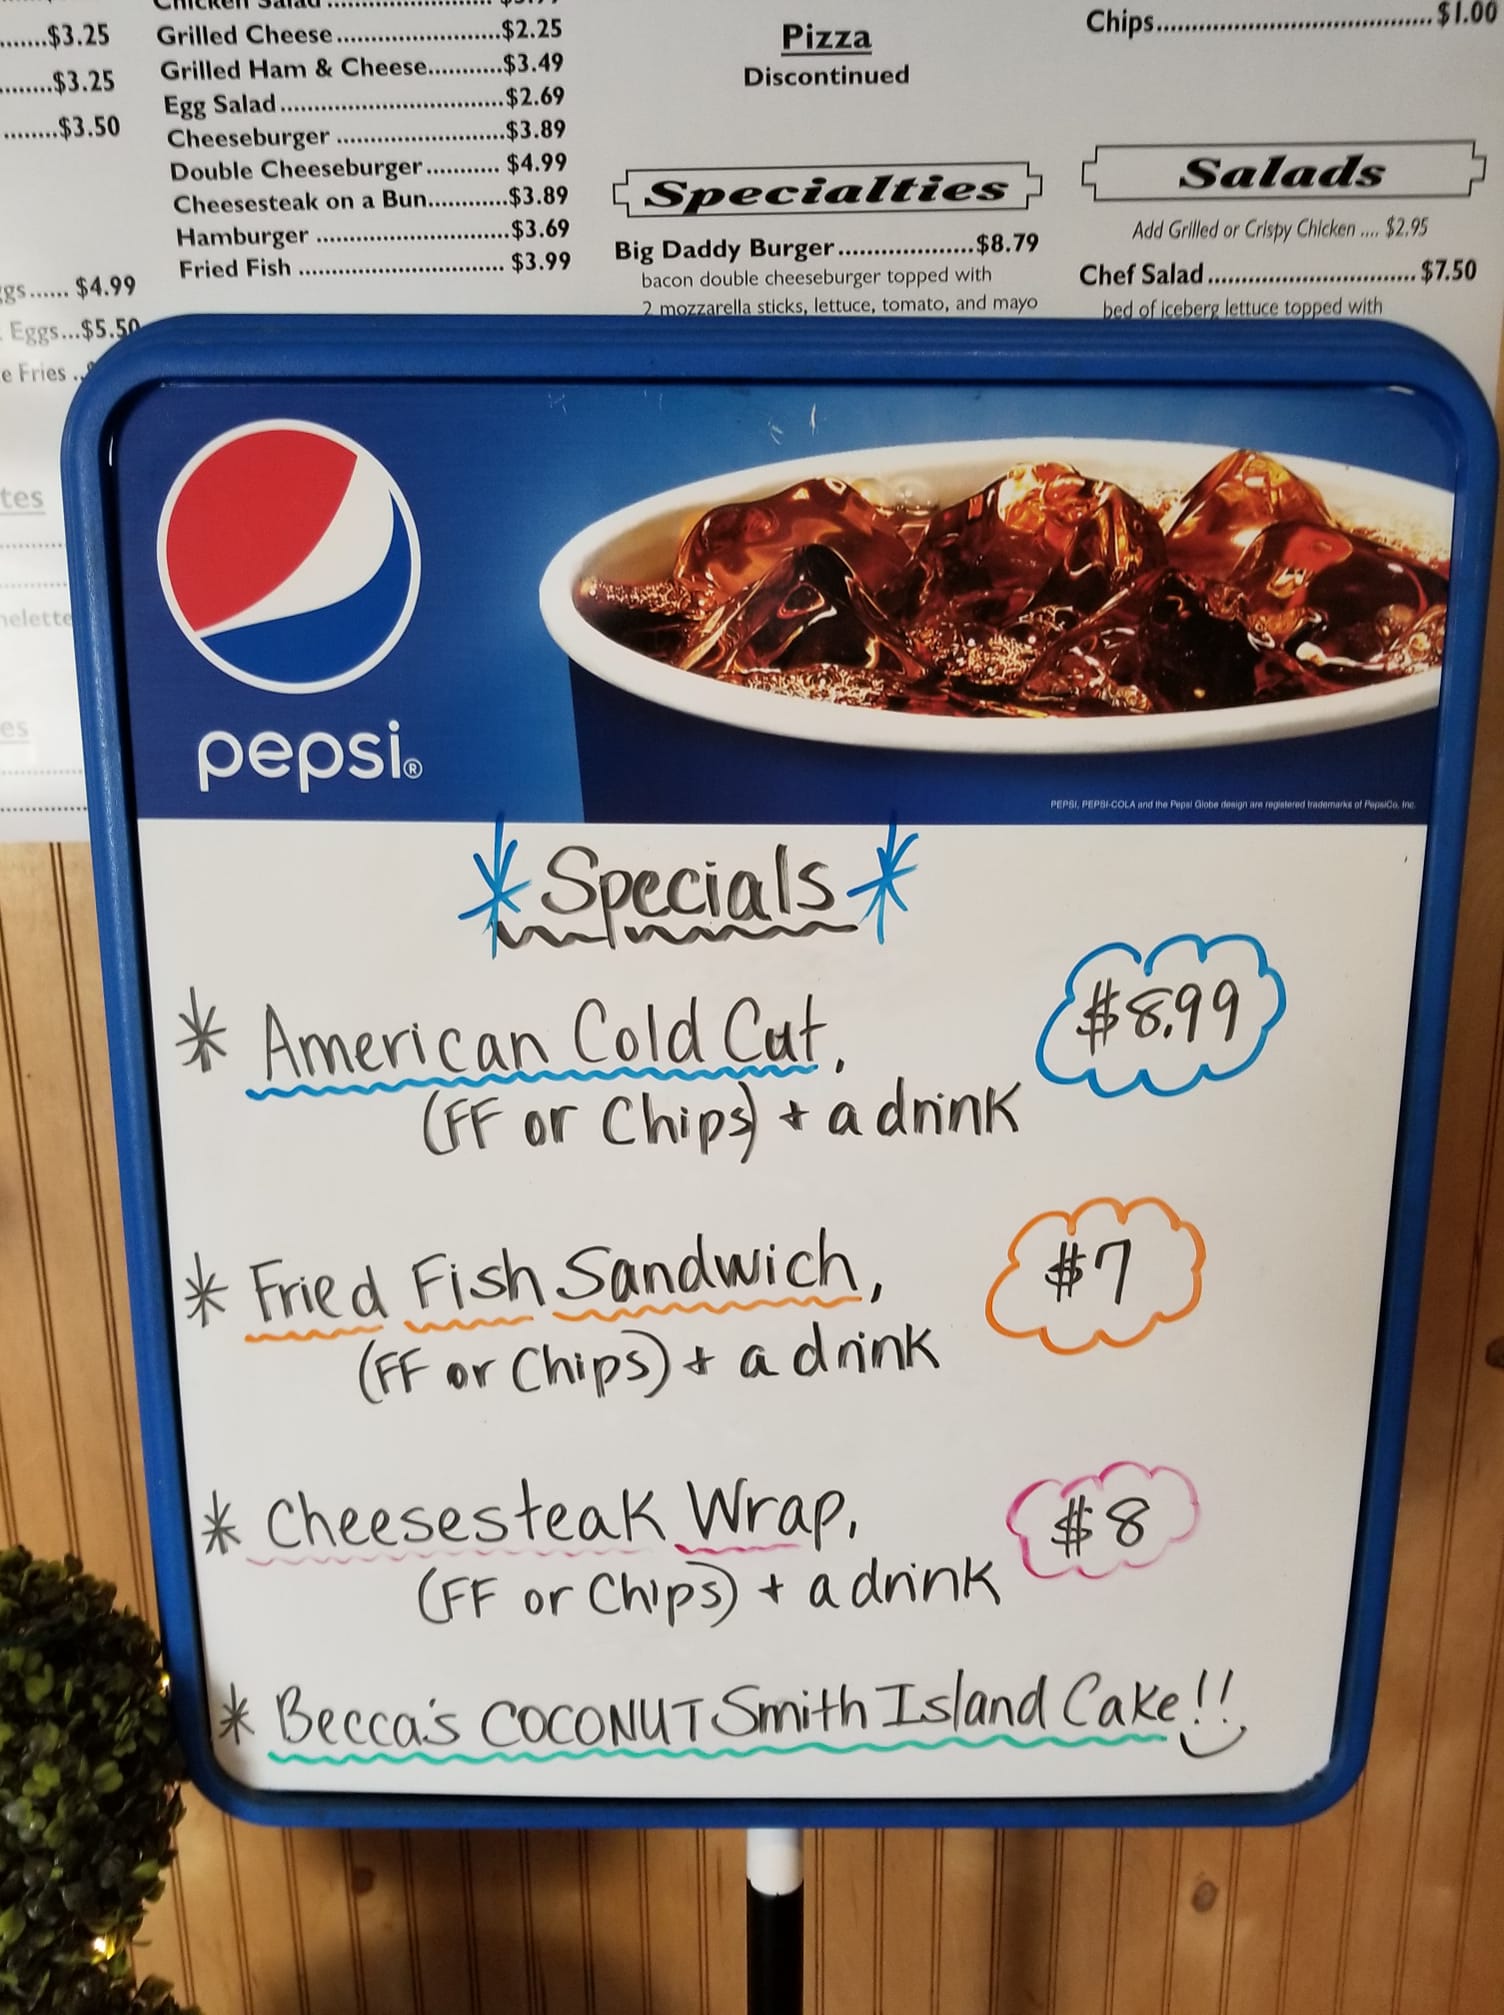 $3.25
$3.25
$3.50
$4.99
Eggs...$5.50
Fries
Chicken Salad
Grilled Cheese.........................$2.25
Grilled Ham & Cheese...........$3.49
Egg Salad..................................$2.69
Cheeseburger .........................$3.89
Double Cheeseburger........... $4.99
Cheesesteak on a Bun............$3.89
Hamburger .............................$3.69
Fried Fish ............................... $3.99
Pizza
Discontinued
Specialties
Big Daddy Burger...................$8.79
bacon double cheeseburger topped with
2 mozzarella sticks, lettuce, tomato, and mayo
Chips..........................................$1.00
Salads
Add Grilled or Crispy Chicken .... $2.95
Chef Salad................................ $7.50
bed of iceberg lettuce topped with
pepsi®
PEPSI, PEPSI-COLA and the Pepsi Globe design are registered trademarks of PepsiCo, Inc.
*Specials*
* American Cold Cut, $8.99
(FF or Chips) + a drink
* Fried Fish Sandwich, $7
(FF or Chips) + a drink
* Cheesesteak Wrap, $8
(FF or Chips) + a drink
* Becca's COCONUT Smith Island Cake!!